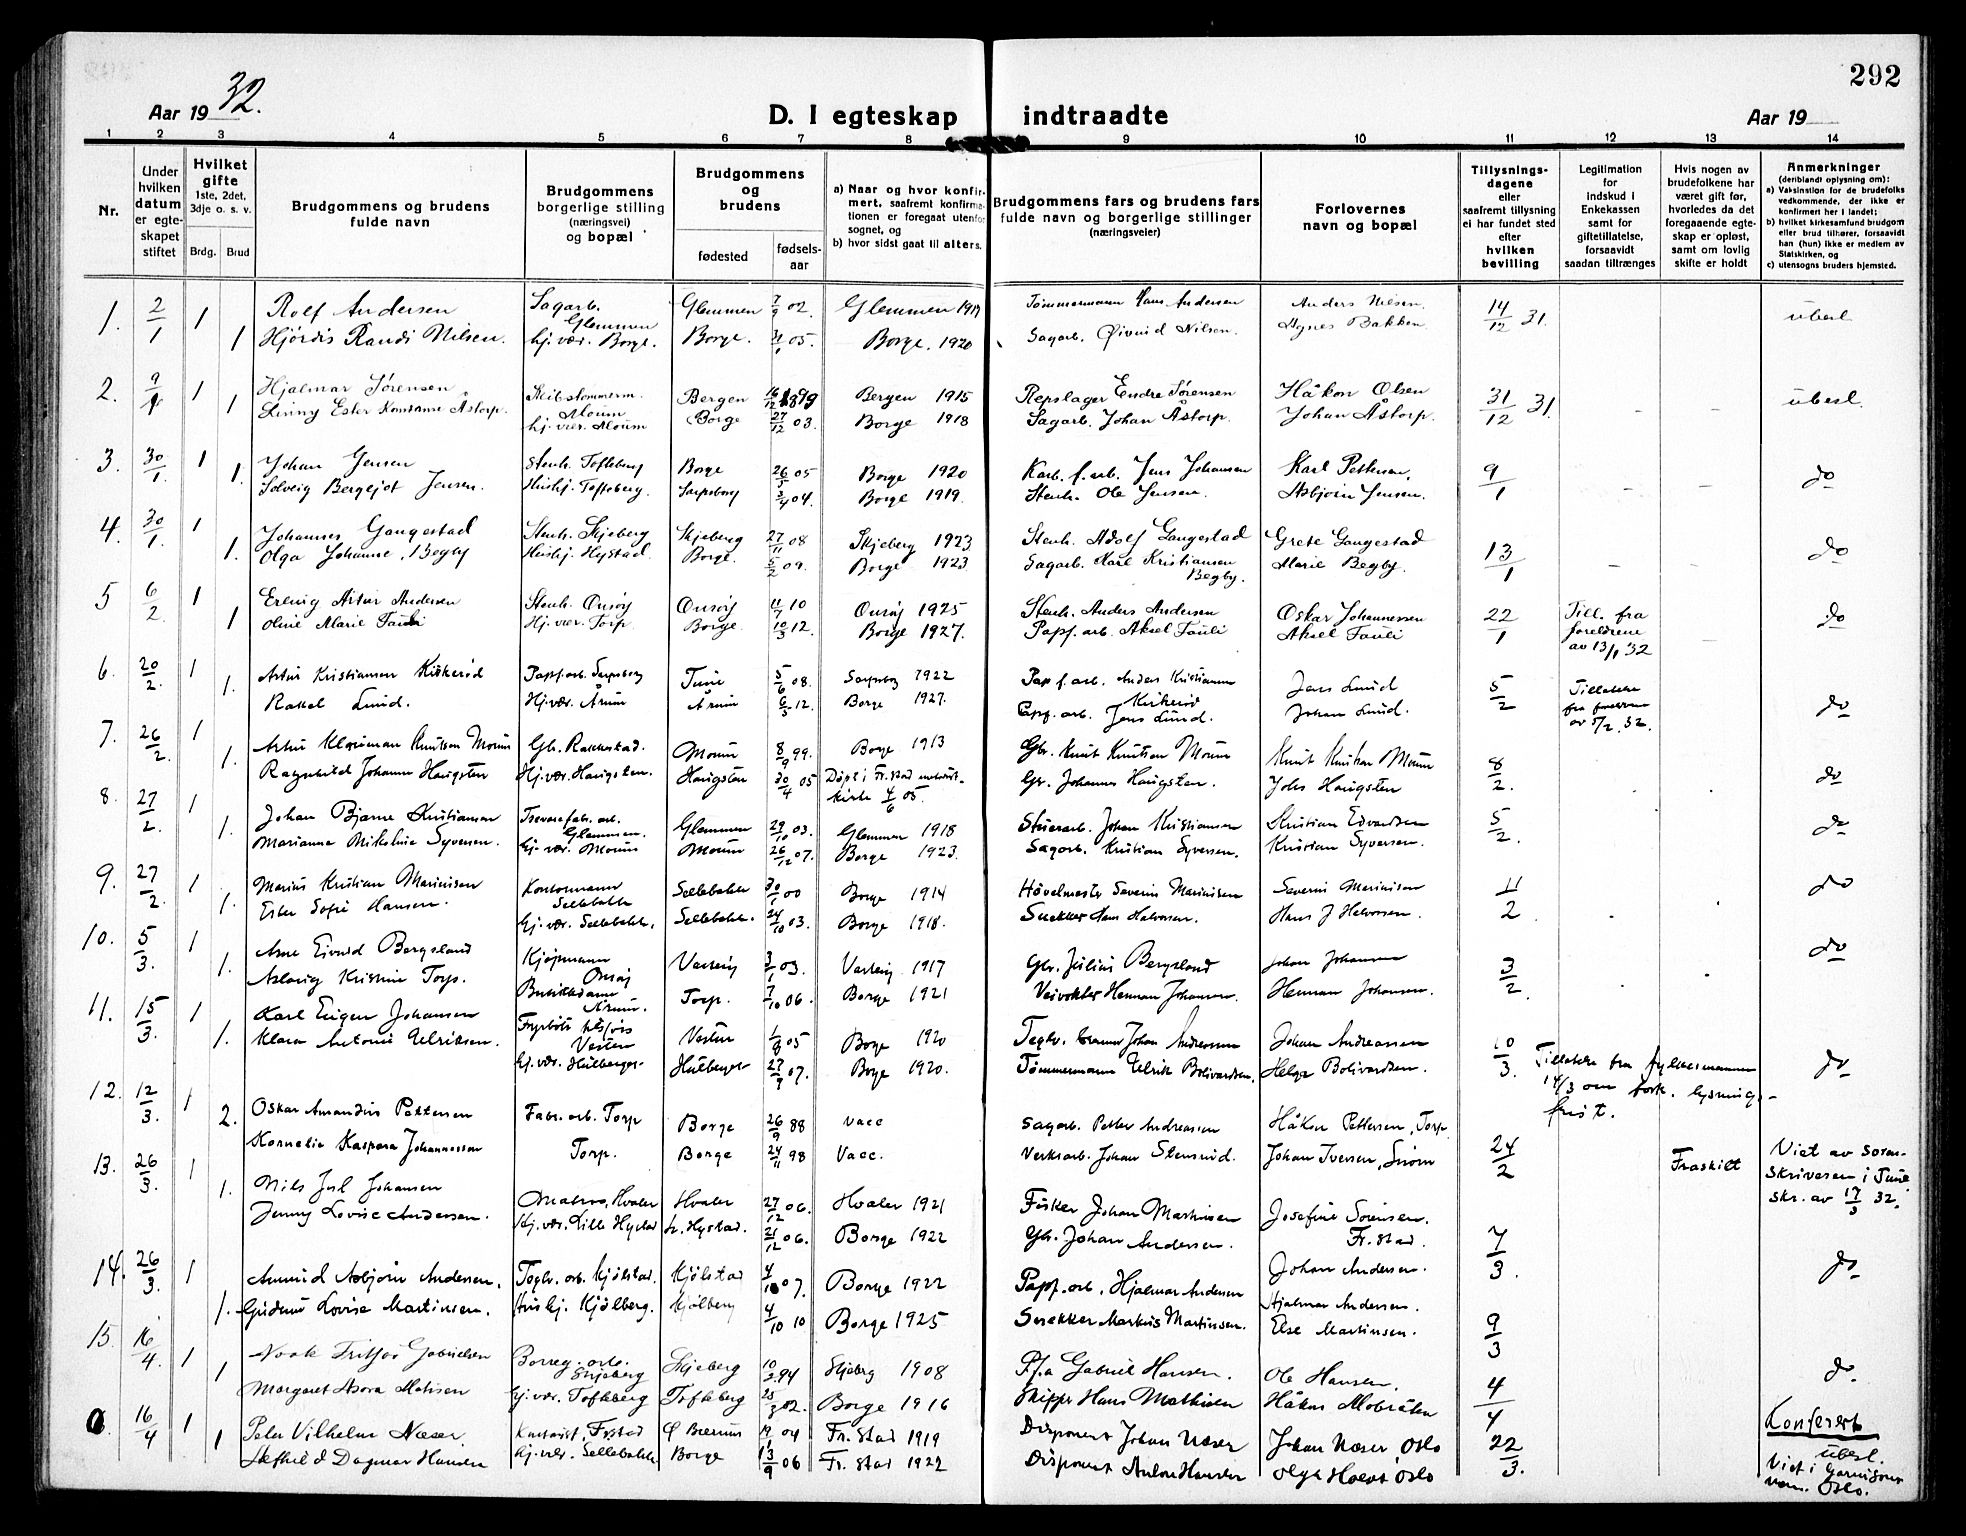 292
Aar 1932.
D. I egteskap indtraadte
Aar 19
1 2 3 4 5 6 7 8 9 10 11 12 13 14
Nr.
Under hvilken datum er egte-skapet stiftet
Hvilket gifte 1ste, 2det, 3dje o. s. v.
Brdg. Brud
Brudgommens og brudens fulde navn
Brudgommens borgerlige stilling (næringsvei) og bopæl
Brudgommens og brudens
fødested
fødsels-aar
a) Naar og hvor konfir-mert, saafremt konfirma-tionen er foregaat utenfor sognet, og
b) hvor sidst gaat til alters.
Brudgommens fars og brudens fars fulde navn og borgerlige stillinger (næringsveier)
Forlovernes navn og bopæl
Tillysnings-dagene eller saafremt tillysning ei har fundet sted efter hvilken bevilling
Legitimation for indskud i Enkekassen samt for giftetillatelse, forsaavidt saadan tiltrænges
Hvis nogen av brudefolkene har været gift før, hvorledes da det foregaaende egte-skap er opløst, samt om lovlig skifte er holdt
Anmerkninger (deriblandt oplysning om):
a) Vaksinstion for de brudefolks vedkommende, der ikke er konfirmert her i landet;
b) hvilket kirkesamfund brudgom eller brud tilhører, forsaavidt han (hun) ikke er medlem av Statskirken, og
c) utensogns bruders hjemsted.
1. 2/1 1 Rolf Andersen Sagarb. Glemmen Glemmen 7/9 02. Glemmen 1917 Tømmermann Hans Andersen Anders Nilsen 14/12 31. ubesl
1 Hjördis Randi Nilsen. hj. vær. Borge. Borge. 05. Borge. 1920 Sagarb. Øivind Nilsen. Agnes Bakken.
2. 9/1 1 Hjalmar Sørensen Skibstømmerm. Bergen 16/12 1899 Bergen 1915 Repslager Endre Sørensen Håkon Olsen 31/12 31. ubesl.
1 Ester Konstanse Åstorp. hj. vær. Borge 27/12 03. Borge 1918 Sagarb. Johan Åstorp. Johan Åstorp.
3. 30/1 1 Johan Jensen Stenh. Tofteberg Borge 26/5 05 Borge 1920 Karb. f. arb. Jens Johansen Karl Pettersen, 9/1 do
1. Solveig Bergljot Jensen. Hushj. Tofteberg. Sarpsborg 3/4 04. Borge 1919. Stenh. Ole Jensen. Asbjørn Jensen.
4. 30/1 1 Johannes Gangestad Stenh. Skjeberg Skjeberg 27/11 08 Skjeberg 1923 Stenh. Adolf Gangestad Grete Gangestad 13/1 do
1. Olga Johanne Begby Hushj. Hystad. Borge. 5/2 09. Borge 1923 Sagarb. Karl Kristiansen Begby. Marie Begby.
5 6/2 1 Erling Artur Andersen Stenh. Onsöy Onsöy 11/7 10 Onsöy 1925 Stenh. Anders Andersen Oskar Johannessen 22/1 Till. fra foreldrene av 13/1 32 do
1 Marie Tauli Hj. vær. Torp Borge 10/3 12. Borge 1927. Papf. arb. Aksel Tauli Aksel Tauli
6. 20/2 1 Artur Kristiansen Kirkerød Papf. arb. Sarpsborg Tune 5/6 08. Sarpsborg 1922 Papf. arb. Anders Kristiansen Kirkerød Jens Lund 5/2 Tillatelse fra foreldrene av 5/2. 32. do
1. Rakel Lund. Hj. vær. Årum Årum 6/3 12. Borge 1927. Papf. arb. Jens Lund. Johan Lund.
7. 26/2 1 Artur Knutsen Moum Gbr. Rakkestad. Moum 8/9 99. Borge 1913 Gbr. Knut Knutsen Moum Knut Knutsen Moum 8/2. do
1. Ragnhild Johanne Haugsten Hj. vær. Haugsten. Haugsten 30/4 05 Döpt i Fr.stad kirke 4/6 05. Gbr. Johannes Haugsten. Johs Haugsten
8. 27/2 1 Johan Bjarne Kristiansen Trevarefabr. arb. Glemmen. Glemmen 29/10 03. Glemmen 1918 Johan Kristiansen Kristian Edvardsen 5/2. do
1. Marianne Mikeline Syversen. hj. vær. Moum Moum 26/12 07. Borge 1923. Sagarb. Kristian Syversen. Kristian Syversen.
9. 27/2 1 Marius Kristian Marinisen Kontormann Sellebakk Sellebakk 30/1 00 Borge 1914 Høvelmester Severin Marinisen Severin Marinisen 11/2 do
1. Ester Sofie Hansen. hj. vær. Sellebakk. Sellebakk. 24/10 03. Borge 1918. Snekker Hans Halvorsen. Hans J Halvorsen.
10. 5/3. 1 Arne Eivind Bergsland Kjøpmann Onsöy 3/1 03. 1917 Gbr. Julius Bergsland Johan Johansen 3/2. do
1. Aslaug Kristine Torp. Butikkdame Årum. Torp. 7/10 06. Borge 1921 Veivokter Herman Johansen. Herman Johansen.
11. 15/3. 1 Karl Eugen Johansen Fyrböter Vesten Vesten 1/8 05 Borge 1920 Teglv. Johan Andreassen Johan Andreassen 10/3. Tillatelse fra fylkesmannen 14/3 om fork. lysnings-frist. do
1. Klara Antonie Ulriksen. hj. vær. Hülberget Hülberget 27/9 07. Borge 1920. Tømmermann Ulrik Bolivardsen. Helge Bolivardsen.
12. 12/3. 1 Oskar Amandus Pettersen Fabr. arb. Torp Borge 26/9 88 Vacc Sagarb. Petter Andreassen Håkon Pettersen, Torp 24/2 Fraskilt Viet av soren-skriveren i Tune skr. av 17/3 32.
2. Kornelia Kaspara Johannessen Torp. Borge 24/11 98 Vacc. Verksarb. Johan Stensrud. Johan Iversen,
13. 26/3. 1 Nils Johansen Hvaler Hvaler 27/12 06. Hvaler 1921 Fisker Johan Martinisen Josefine Sørensen. Fr. stad. 7/3. do
1. Jenny Lovise Andersen. Hj. vær. Lille Hystad L. Hystad. 21/12 06. Borge 1922 Gbr. Johan Andersen. Johan Andersen.
14. 26/3. 1 Asbjørn Andersen. Teglv. arb. Kjølstad. Kjølstad 4/10 07. Borge 1922 Papf. arb. Hjalmar Andersen Hjalmar Andersen. 9/3
1. Gudrun Lovise Martinsen. Hushj. Kjølberg. Kjølberg 4/10 10 Borge 1925 Snekker Markus Martinsen. Else Martinsen.
15. 16/4. 1 Noak Fritjof Gabrielsen Borreg. arb. Skjeberg Skjeberg 10/2 94 Skjeberg 1908 P/f.a Gabriel Hansen. Ole Hansen. 4/4 do.
1 Margaret Asora Matisen hj. vær. Tofteberg Tofteberg 02. Borge 1916 Skipper Hans Mathisen Håkon Mobråten
16/4 1 Peter Vilhelm Næser. Fr.stad Ø Bærum 04 Fr. Stad 1919 Disponent Johan Næser Johan Næser Oslo 22/3. Konferert ubesl. Viet i Garnisons Oslo.
1 Dagmar Hansen hj. vær. Sellebakk Borge 13/9 06 Fr. Stad 1922 Disponent Anton Hansen Olga Oslo